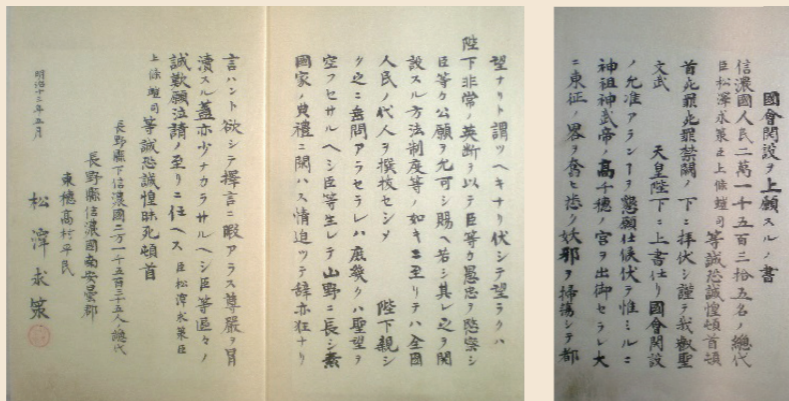 國會開設ヲ上願スルノ書
信濃國人民二萬一千五百三拾五名ノ總代
臣松澤求策臣上條螘司等誠恐誠惶頓首頓
首死罪死罪禁闕ノ下ニ拝伏シ謹テ我叡聖
文武 天皇陛下ニ上書仕リ國會開設
ノ允准アランヿヲ懇願仕候伏テ惟ミルニ
神祖神武帝ノ高千穂ノ宮ヲ出御セラレ大
ニ東征ノ畧ヲ奮セ悉ク妖邪ヲ掃蕩シテ都
望ナリト謂ツヘキナリ伏シテ望ラクハ
陛下非常ノ英断ヲ以テ臣等カ愚忠ヲ憐察シ
臣等カ公願ヲ允可シ賜ヘ若シ其レ之ヲ開
設スル方法制度等ノ如キニ至リテハ全国
人民ノ代人ヲ撰抜セシメ 陛下親シ
ク之ニ垂問アラセラレハ庶幾クハ聖望ヲ
空フセサルヘシ臣等生レテ山野ニ長シ素
國家ノ典禮ニ閑ハス情迫ツテ辞亦狂ナリ
言ハント欲シテ擇言ニ暇アラス尊嚴ヲ冒
瀆スル蓋亦少ナカラサルヘシ臣等區々ノ
誠歎願泣請ノ至リニ任ヘス臣松澤求策臣
上條螘司等誠恐誠惶昧死頓首
長野縣下信濃國二万一千五百三十五人ノ總代
長野縣信濃國南安曇郡
東穂高村平民
松澤求策
明治十三年五月